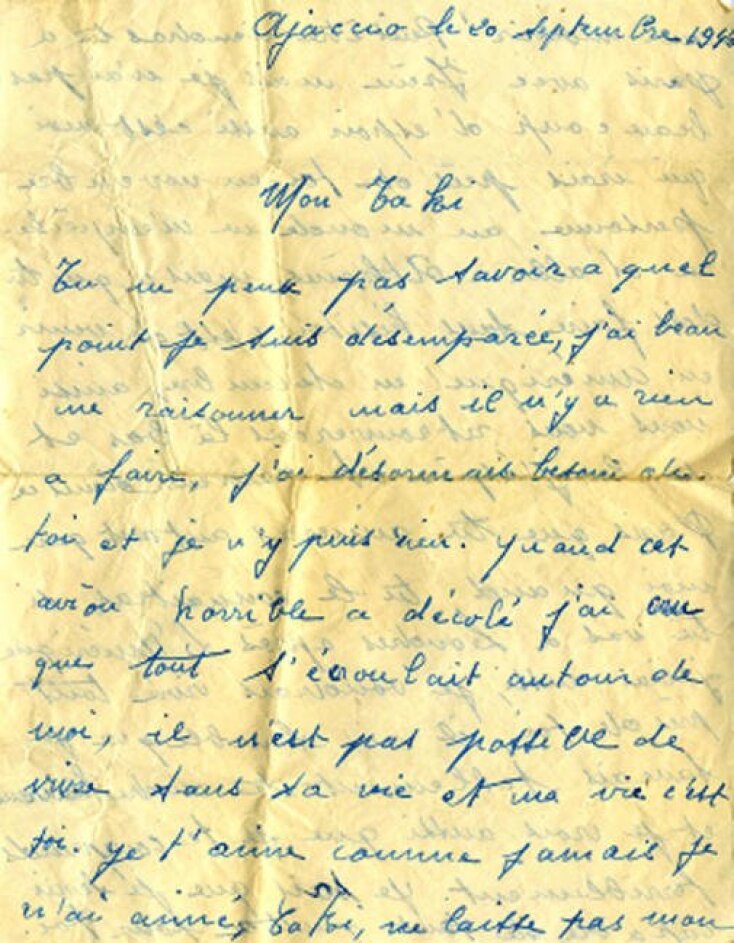 Ajaccio le 20 septembre 194
Mon Taki
Tu ne peux pas savoir a quel
point je suis désemparée, j'ai beau
me raisonner mais il n'y a rien
a faire, j'ai désormais besoin de
toi et je n'y puis rien. Quand cet
avion horrible a décolé j'ai cru
que tout s'écroulait autour de
moi, il n'est pas possible de
vivre sans sa vie et ma vie c'est
toi. Je t'aime comme jamais je
n'ai aimé, Taki, ne laisse pas mon